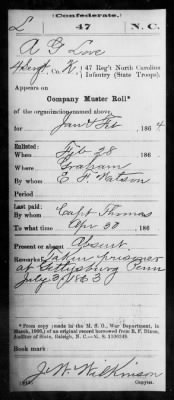 (Confederate.)
L 47 N.C.
A G Love
4 Sergt, Co. K, 47 Reg't North Carolina
Infantry (State Troops).
Appears on
Company Muster Roll*
of the organization named above,
for Jan & Feb, 1864
Enlisted:
When Feb 28, 186
Where Graham
By whom E. F. Watson
Period
Last paid:
By whom Capt Thomas
To what time Apr 30, 186
Present or absent Absent
Remarks: Taken prisoner
at Gettysburg Penn
July 3, 1863
*From copy (made in the M. S. O., War Department, in
March, 1900,) of an original record borrowed from B. F. Dixon,
Auditor of State, Raleigh, N. C.—M. S.
Book mark:
J. W. Wilkinson
Copyist.